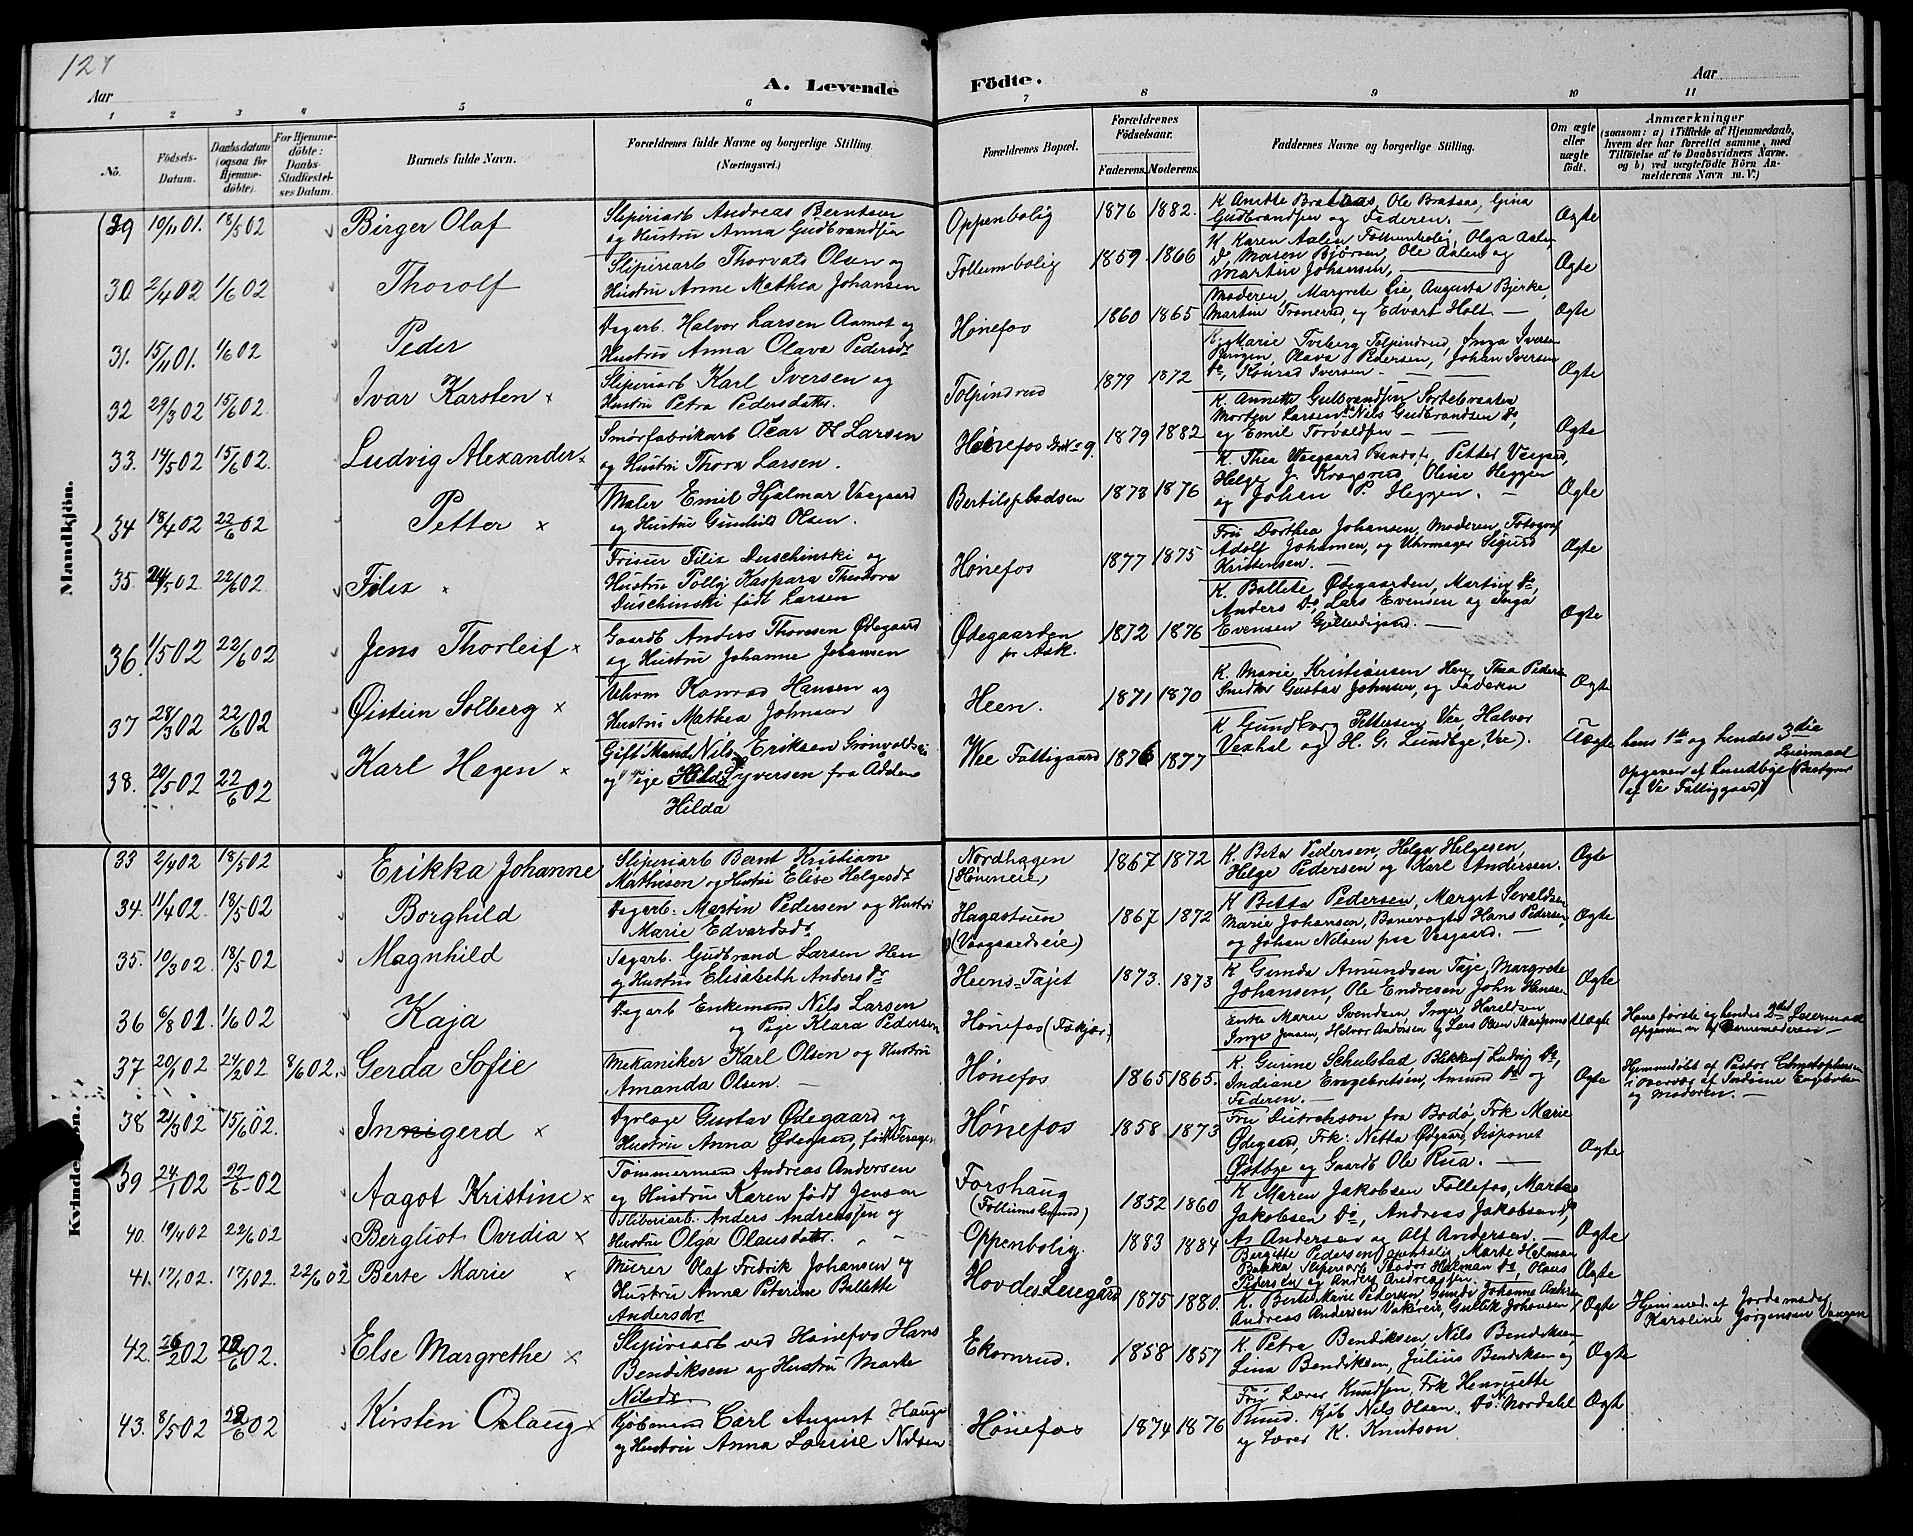 127
A. Levende Födte.
Aar
Aar
1 2 3 4 5 6 7 8 9 10 11
No.
Födsels-Datum.
Daabsdatum (ogsaa for Hjemmedöbte).
For Hjemmedöbte: Daabs-Stadfæstelses Datum.
Barnets fulde Navn.
Forældrenes fulde Navne og borgerlige Stilling (Næringsvei.)
Forældrenes Bopæl.
Forældrenes Födselsaar. Faderens. Moderens.
Faddernes Navne og borgerlige Stilling.
Om ægte eller uægte födt.
Anmærkninger
(saasom: a) i Tilfælde af Hjemmedaab,
hvem der har forrettet samme, med
Tilföielse af to Daabsvidners Navne,
og b) ved uægtefödte Börn Anmelderens Navn m. V.)
Mandkjön.
39 10/11 01. 18/5 02 Birger Olaf
Slipiriarb Andreas Berntsen
og Hustru Anna Gudbrandsen
Oppenbolig 1876 1882.
K Anette Brataas, Ole Brataas, Gina
Gudbrandsen og Faderen. Ægte
30 2/4 02 1/6 02 Thorolf
Slipiriarb Thorvats Olsen og
Hustru Anne Mathea Johansen
Follumbolig 1859 1866
K Karen Aalen Follumbolig, Olga Aalen
Do, Ole Aalen og
Martin Johansen, Ægte
31. 15/11 01. 1/6 02 Peder
Dagarb. Halvor Larsen Aamot og
Hustru Anna Olava Pedersdt
Hønefos 1860 1865
Moderen, Margrete Lie, Augusta Bjerke,
Martin Tronerud, og Edvart Holt. Ægte
32 29/3 02 15/6 02. Ivar Karsten x
Slipiriarb Karl Iversen og
Hustru Petra Pedersdatter.
Tolpindrud 1879 1872
K. Marie Tveberg Tolpindrud, Inga Iversen
Olava Pedersen, Johan Iversen
Do, Konrad Iversen. Ægte
33. 14/5 02 15/6 02. Ludvig Alexander x
Smørfabrikarb Oscar H Larsen
og Hustru Thora Larsen.
Hønefos 1879 1882
K. Annette Gulbrandsen Sortebraaten
Morten Larsen Nils Gudbrandsen Do,
og Emil Torvaldsen Ægte
34 18/4 02 22/6 02 Petter x
Maler Emil Hjalmar Vaagaard
og Hustru Gunhild Olsen.
Bertilspladsen 1873 1876
K. Thea Vaagaard Petter Vaagaard,
Helge J. Kragsrud Oline Heggen
og Johan P. Heggen. Ægte
35. 24/5 02. 22/6 02 Filix
Frisør Filix Duschinski og
Hustru Polly Kaspara Theodora
Duschinski født Larsen
Hønefos 1877 1875
Fru Dorthea Johansen, Moderen, Fotograf
Adolf Johansen, og Uhrmager Sigurd
Kristensen. Ægte
36. 1/5 02 22/6 02 Jens Thorleif x
Gaardb Anders Thoresen Ødegaard
og Hustru Johanne Johansen
Ødegaarden pr Ask. 1872 1876
K. Ballete Ødegaarden, Martin Do,
Anders Do, Lars Evensen og Inga
Evensen Ægte
37 28/3 02 22/6 02 Øistein Solberg x
Konrad Hansen og
Hustru Mathea Johnsen
Heen. 1871 1870
K. Marie Kristiansen Hen, Thea Pedersen
Snedker Gustav Johnsen, og Faderen Ægte
38. 20/5 02 22/6 02 Karl Hagen x
Gift Mand Nils Eriksen Grønvold
og Pige Hilda Syversen fra Aadalen
Hilda
Vee Fattigaard 1876 1877
K Gundborg Pettersen Vee, Halvor
Vexhal og H. G. Lundbye, Vee). Uægte
hans 1ste og hendes 3die Leiermaal
Opgaven af Lundbye (Bestyrer
af Ve Fattiggaard)
Kvindekjön.
33 2/4 02 18/5 02 Erikka Johanne
Slipiriarb Bernt Kristian
Mathisen og Hustru Elise Helgesdt
Nordhagen (Høneneie) 1867 1872
K. Beta Pedersen, Helga Helgesen,
Helge Pedersen og Karl Andersen. Ægte
34. 11/4 02. 18/5 02 Borghild
Dagarb. Martin Pedersen og Hustru
Marie Edvardsdt
Hagastuen (Vaagaardseie) 1867 1872
K Betta Pedersen, Marget Sevaldsen
Marie Johansen, Banevogter Hans Pedersen,
og Johan Nilsen paa Vaagaard. Ægte
35. 10/3 02. 18/5 02 Magnhild
Dagarb. Gudbrand Larsen Hen
og Hustru Elisabeth Andersdr
Heens=Tajet 1873. 1873
K Gunda Amundsen Taje, Margrete
Johansen, Ole Endresen John Hansen Ægte
36 6/8 01. 1/6 02 Kaja
Dagarb Enkemand Nils Larsen
og Pige Klara Pedersen
Hønefos
Enke Marie Svendsen, Inger Haraldsen
Inge Jensen, Halvor Andersen og Lars Olsen Uægte
Hans første og hendes 2det Leiermaal
Opgaven er af Barnemoderen
37 20/1 02 24/2 02 8/6 02. Gerda Sofie
Mekaniker Karl Olsen og Hustru
Amanda Olsen.
Hønefos 1865 1865.
K. Gurine Schulstad Ludvig Do,
Indiane Engebretsen, Amund Do og
Faderen. Ægte
Hjemmedøbt af Pastor Christophersen
i overvær af Indiane Engebretsen
og Moderen.
38 24/3 02 15/6 02. Inn̶i̶gerd x
Dyrlæge Gustav Ødegaard og
Hustru Anna Ødegaard, født
Hønefos 1858 1873
Fru fra Bodø, Frk Marie
Ødegaard, Frk. Netta Ødgaard, Disponet
Østbye og Gaardb Ole Rua. Ægte
39 24/1 02 22/6 02 Aagot Kristine x
Tømmermand Andreas Andersen
og Hustru Karen født Jensen
Forshaug (Follums Grund) 1852 1860
K Maren Jakobsen Follefos, Martin
Jakobsen Do, Andreas Jakobsen Do,
As Andersen og Alf Andersen. Ægte
40. 19/4 02 22/6 02 Bergliot Ovidia x
Sliberiarb. Anders Andreassen og
Hustru Olga Olausdatter.
Oppenbolig. 1883 1884
Bergitte Pedersen Oppenbolig, Marte Halman
Bakka Slipiriarb Theodor Halman Do, Olaus
Pedersen og Anders Andreassen. Ægte
41. 17/1 02. 17/1 02. 22/6 02 Berte Marie x
Murer Olaf Fredrik Johansen og
Hustru Anna Peterine Ballette
Andersdr
Hovdes Løkegård 1875 1880.
K. Berte Marie Pedersen, Gunda Johanne
Andreas Andersen Vakereie, Gullik Johansen Ægte
Hjemmed. af Jordemoder
Karoline Jørgensen
42. 26/2 02 22/6 02. Else Margrethe x
Slipiriarb ved Hønefos Hans
Bendiksen og Hustru Marte
Nilsdr
Ekornrud. 1858 1857
K. Petra Bendiksen, Nils Bendiksen,
Lina Bendiksen, Julius Bendiksen og Ægte
43. 8/5 02 22/6 02 Kirsten Oslaug x
Kjøbmand Carl August Hauge
og Hustru Anna Lovise Nilsen
Hønefos 1874 1876
Fru Lærer Knudsen, Frk Henriette
Rund. Kjøb Nils Olsen, Do. Nordahl
og Lærer K. Knutson Ægte